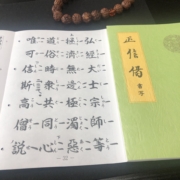 正信偈
弘經大士宗師等
拯濟無邊極濁惡
道俗時衆共同心
唯可信斯高僧説